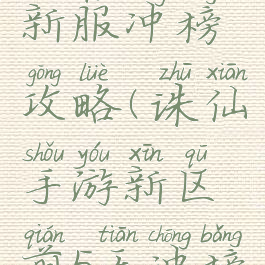 新服冲榜
gōng lüè zhū xiān
攻略(诛仙
shǒu yóu xīn qū
手游新区
qián tiān chōng bǎng
前5天冲榜